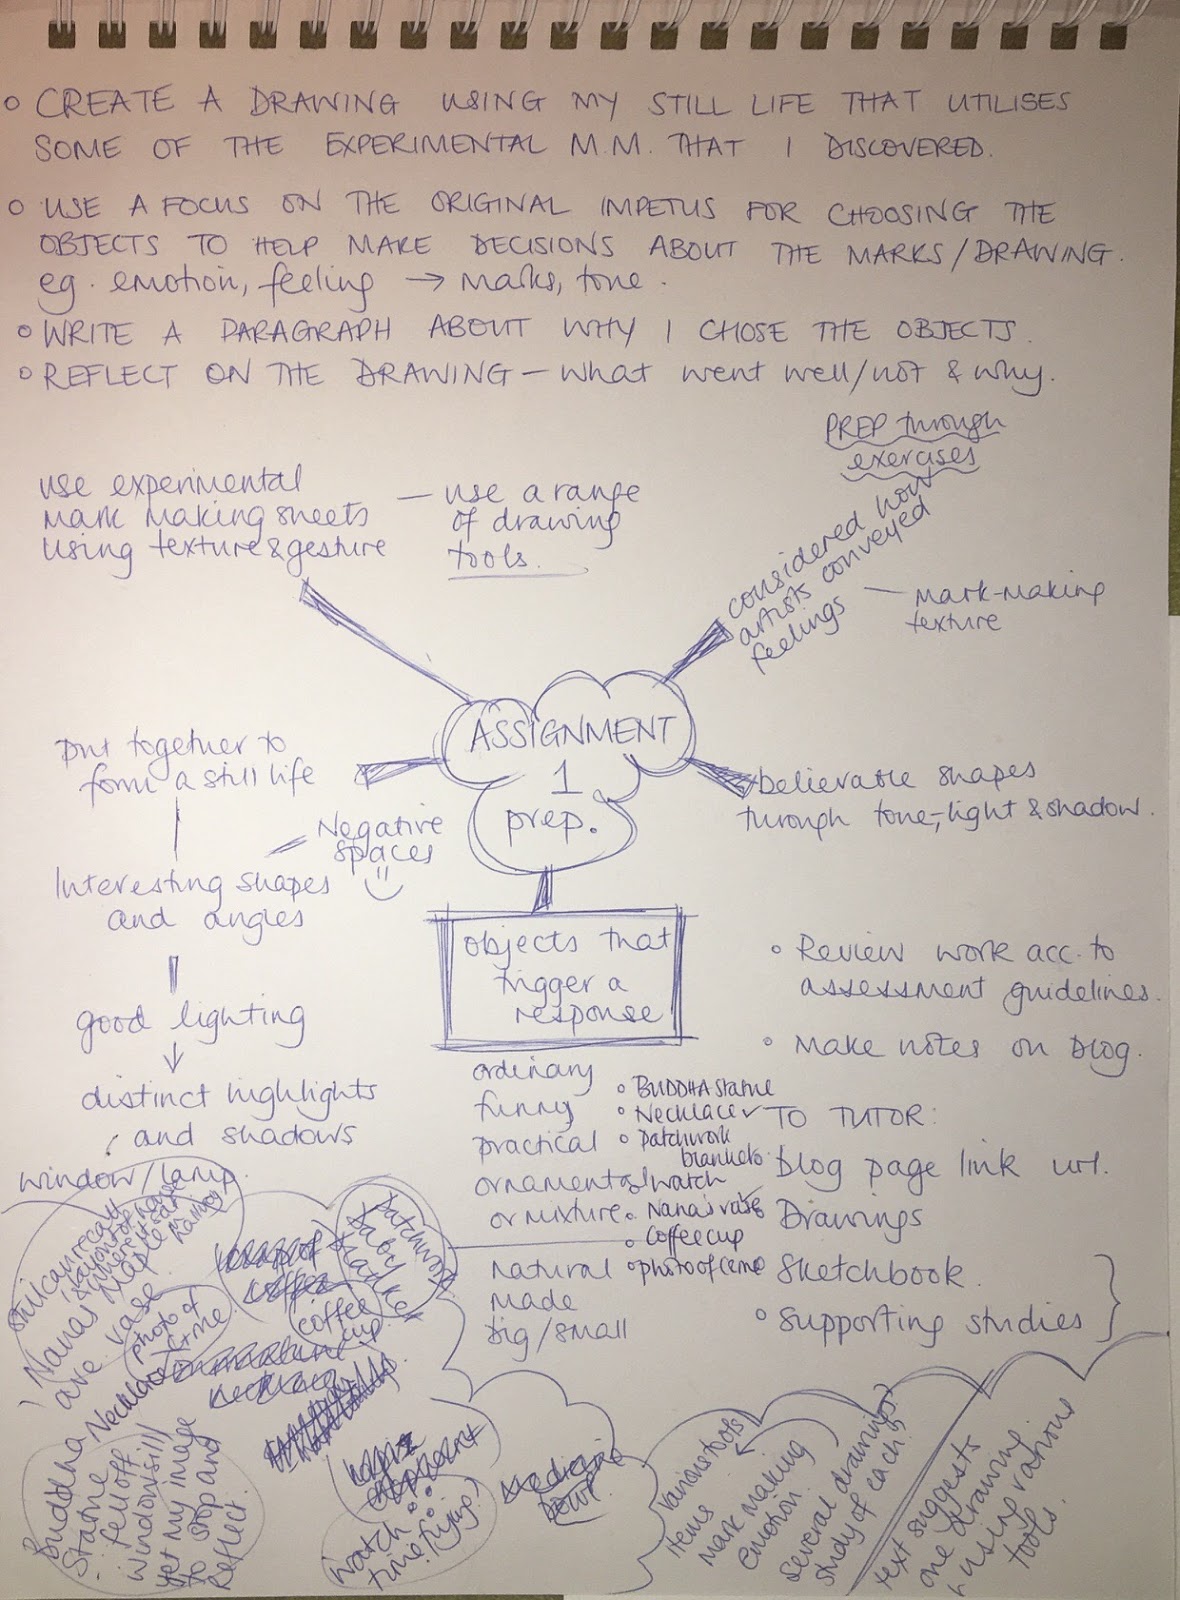 ○ CREATE A DRAWING USING MY STILL LIFE THAT UTILISES
SOME OF THE EXPERIMENTAL M.M. THAT I DISCOVERED.
○ USE A FOCUS ON THE ORIGINAL IMPETUS FOR CHOOSING THE
OBJECTS TO HELP MAKE DECISIONS ABOUT THE MARKS/DRAWING.
eg. emotion, feeling → marks, tone.
○ WRITE A PARAGRAPH ABOUT WHY I CHOSE THE OBJECTS.
○ REFLECT ON THE DRAWING – what went well/not & why.
PREP through
exercises
use experimental
mark making sheets
using texture & gesture
– use a range
of drawing
tools.
considered how
artists conveyed
feelings
– mark-making
texture
ASSIGNMENT
1
prep.
put together to
form a still life
believable shapes
through tone, light & shadow.
Negative
spaces
Interesting shapes
and angles
objects that
trigger a
response
good lighting
↓
distinct highlights
and shadows
window/lamp
• Review work acc. to
assessment guidelines.
• Make notes on blog.
ordinary
funny
practical
ornamental
or mixture
natural
made
big/small
• BUDDHA statue
• Necklace
• patchwork
blanket
• watch
• Nana's vase
• Coffee cup
• photo of
TO TUTOR:
blog page link url.
Drawings
Sketchbook
• supporting studies
still can recall
Nana's
vase
photo of
Necklace
coffee
cup
patchwork
Buddha
Statue
- fell off
windowsill
yet my image
to stop and
Reflect.
watch
time flying!
bowl
various tools
items
mark making
emotion
several drawings?
study of each?
text suggests
one drawing
using various
tools.